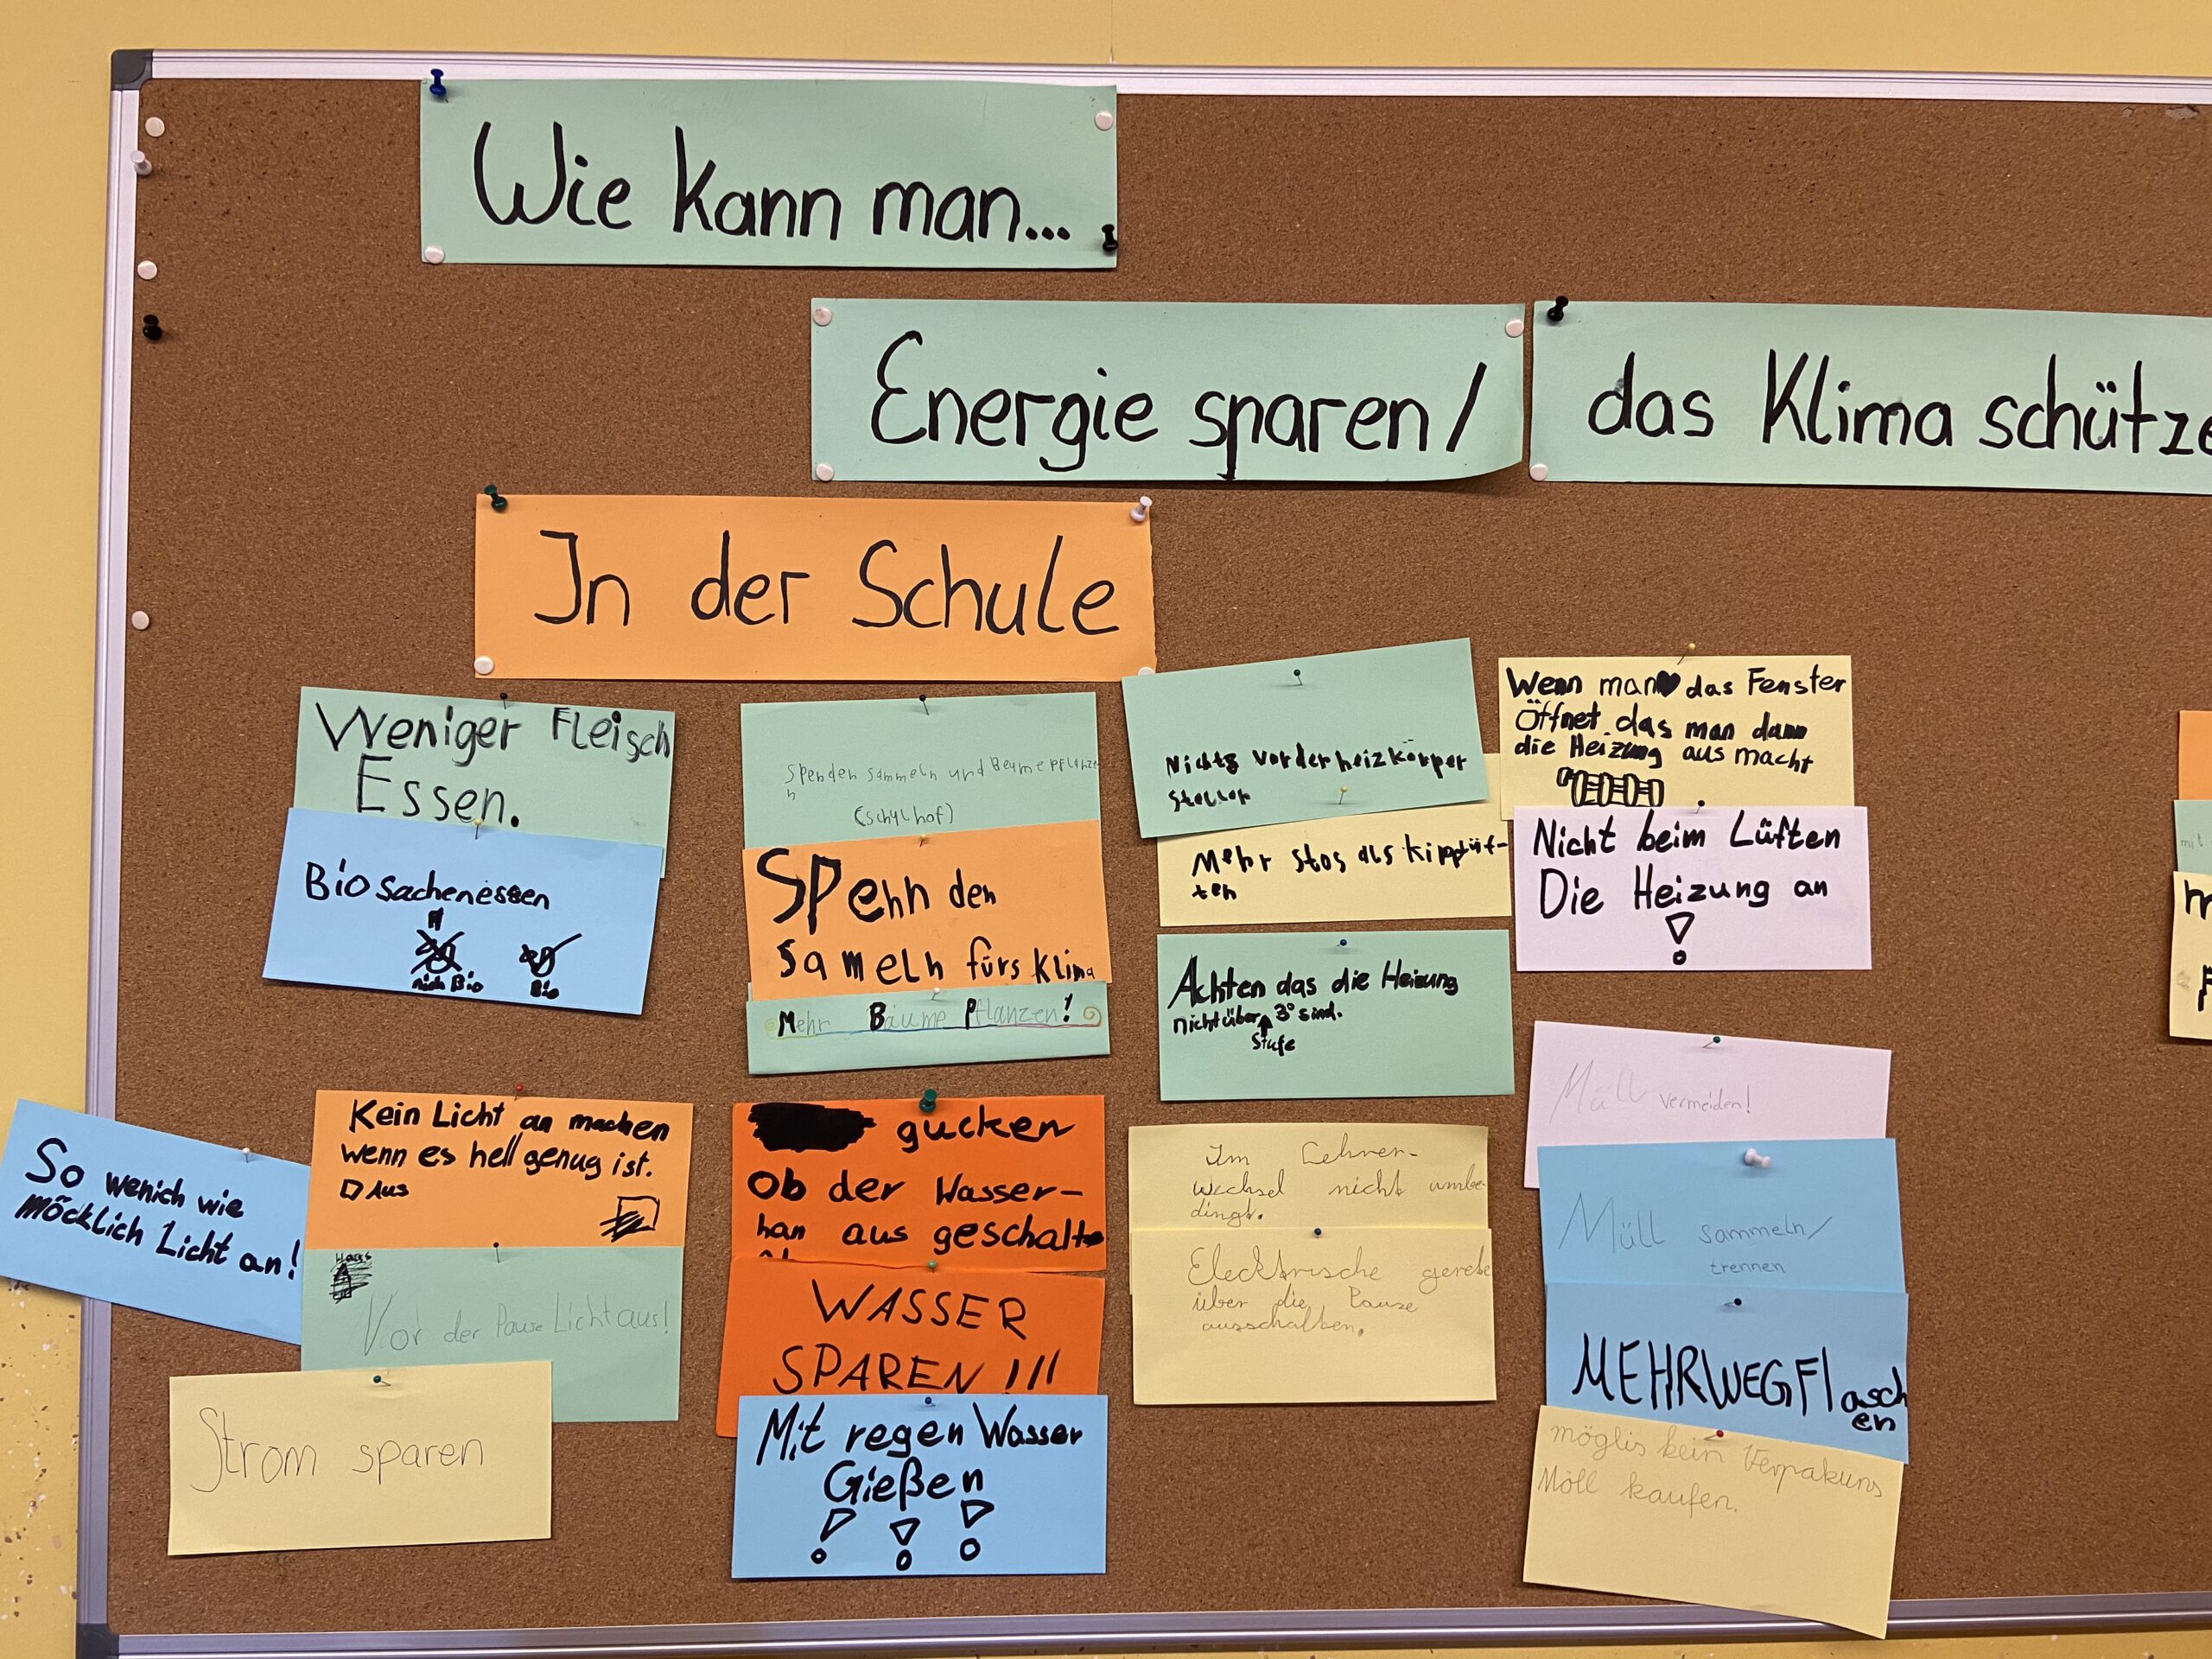 Wie kann man...
Energie sparen/
das Klima schütze
In der Schule
Weniger Fleisch
Essen.
Bio sachen essen
nich Bio
Bio
Spenden sammeln und Beume pflanze
n
(schulhof)
Spenn den
sameln fürs Klima
Mehr Bäume Pflanzen!
Nichts vor der heizkörper
stellen
Mehr stos als kipplüf-
ten
Achten das die Heizung
nicht über 3° sind.
Stufe
Wenn man das Fenster
Öffnet das man dann
die Heizung aus macht
Nicht beim Lüften
Die Heizung an
!
So wenich wie
möcklich Licht an!
Kein Licht an machen
wenn es hell genug ist.
Aus
Vor der Pause Licht aus!
Strom sparen
gucken
ob der Wasser-
han aus geschalte
WASSER
SPAREN !!!
Mit regen Wasser
Gießen
! ! !
Im Lehrer-
wechsel nicht umbe-
dingt.
Elecktrische gerete
über die Pause
ausschalten.
Müll vermeiden!
Müll sammeln/
trennen
MEHRWEGFlasch
en
möglis kein Verpakuns
Möll kaufen.